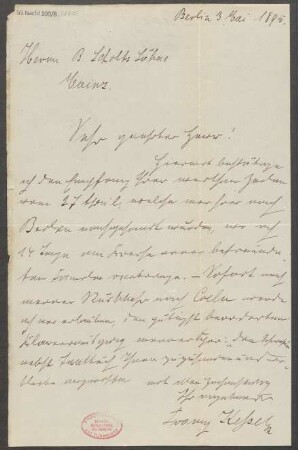 Berlin 3 Mai 189
Herrn B Schotts Söhne
Mainz.
Sehr geehrter Herr!
Hiermit bestätige
ich den Empfang Ihrer werthen Zeilen
vom 27 April, welche mir hier nach
Berlin nachgesandt wurden, wo ich
14 Tage im Kreise einer befreundeten
Familie verbringe. – Sofort nach
meiner Rückkehr nach Coeln werde
ich mir erlauben, den gütigst beorderten
Klavierauszug meiner
nebst Ihnen zuzusenden und
bleibe inzwischen mit aller Hochachtung
Ihr ergebenster
Franz Kessel